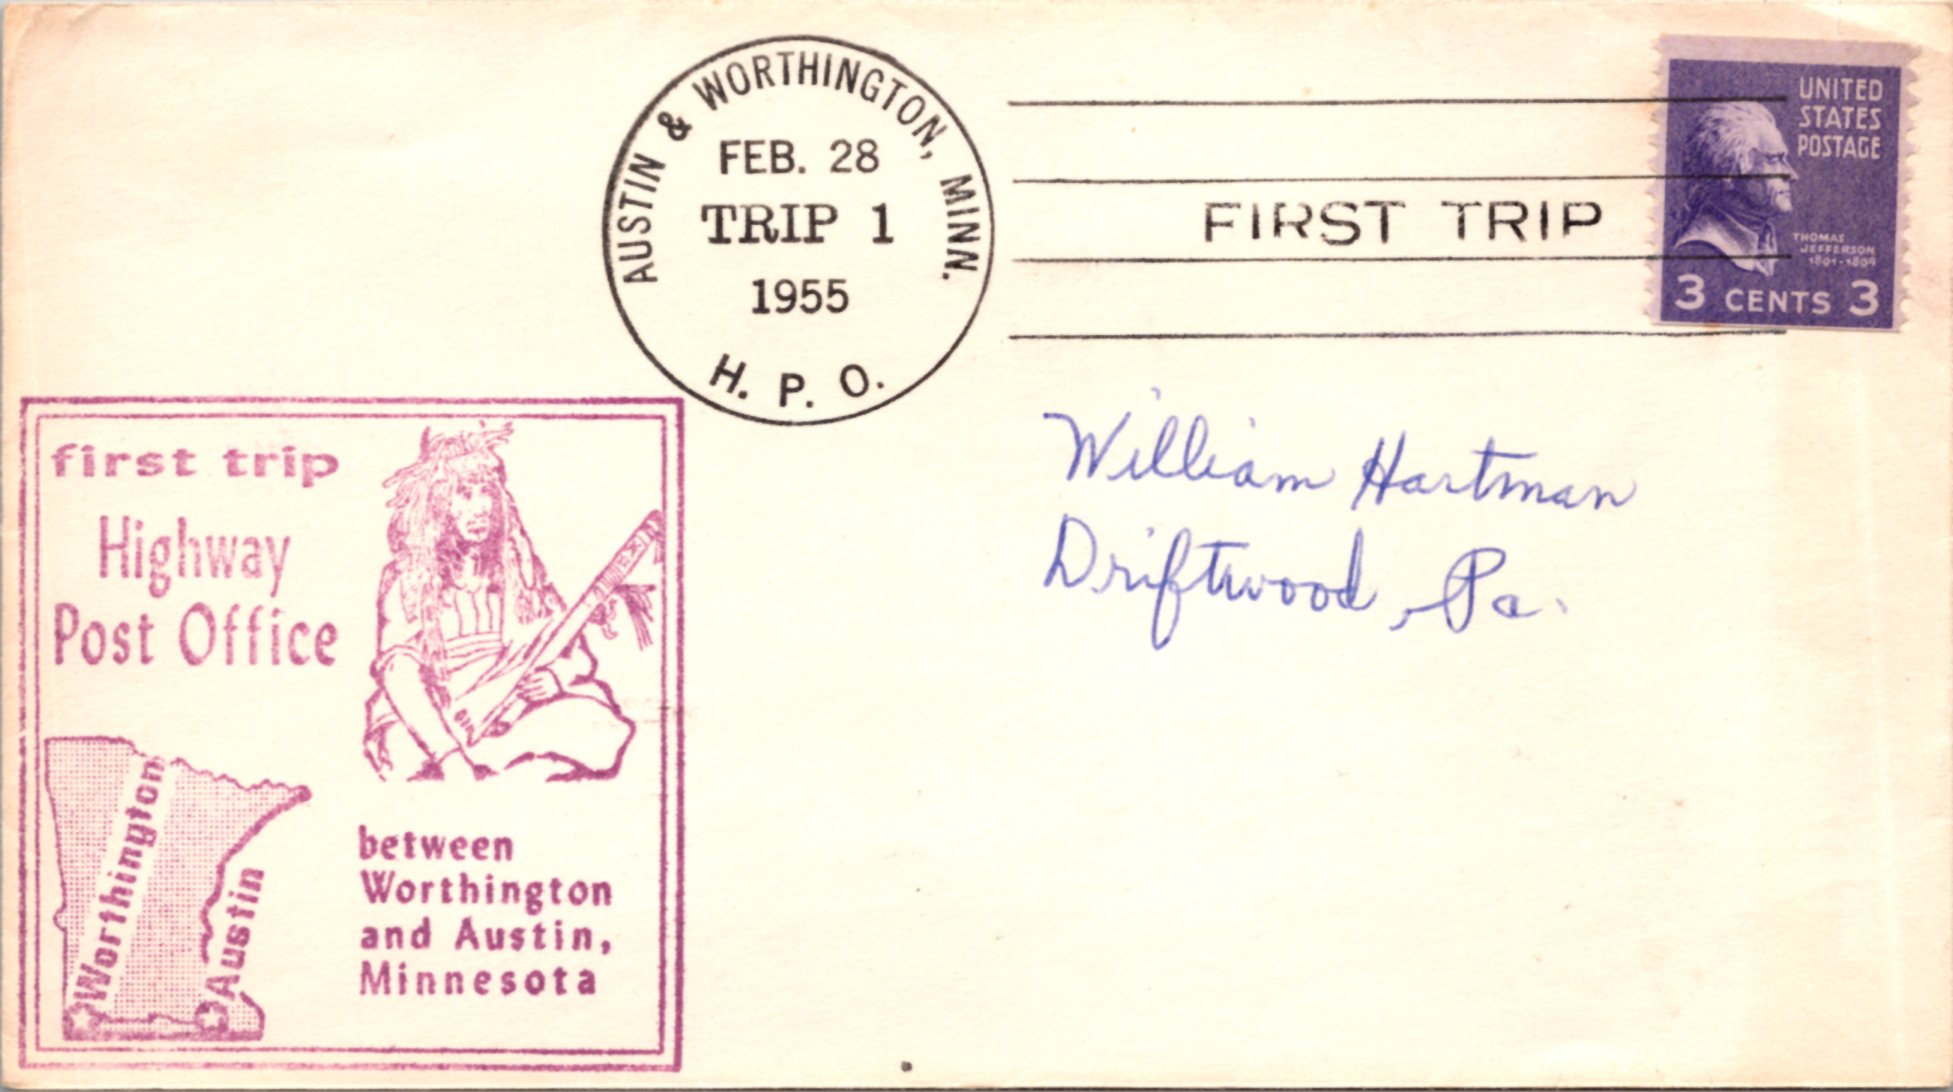 AUSTIN & WORTHINGTON, MINN.
FEB. 28
TRIP 1
1955
H. P. O.
FIRST TRIP
UNITED
STATES
POSTAGE
THOMAS
JEFFERSON
1801-1809
3 CENTS 3
William Hartman
Driftwood, Pa.
first trip
Highway
Post Office
Worthington
Austin
between
Worthington
and Austin,
Minnesota